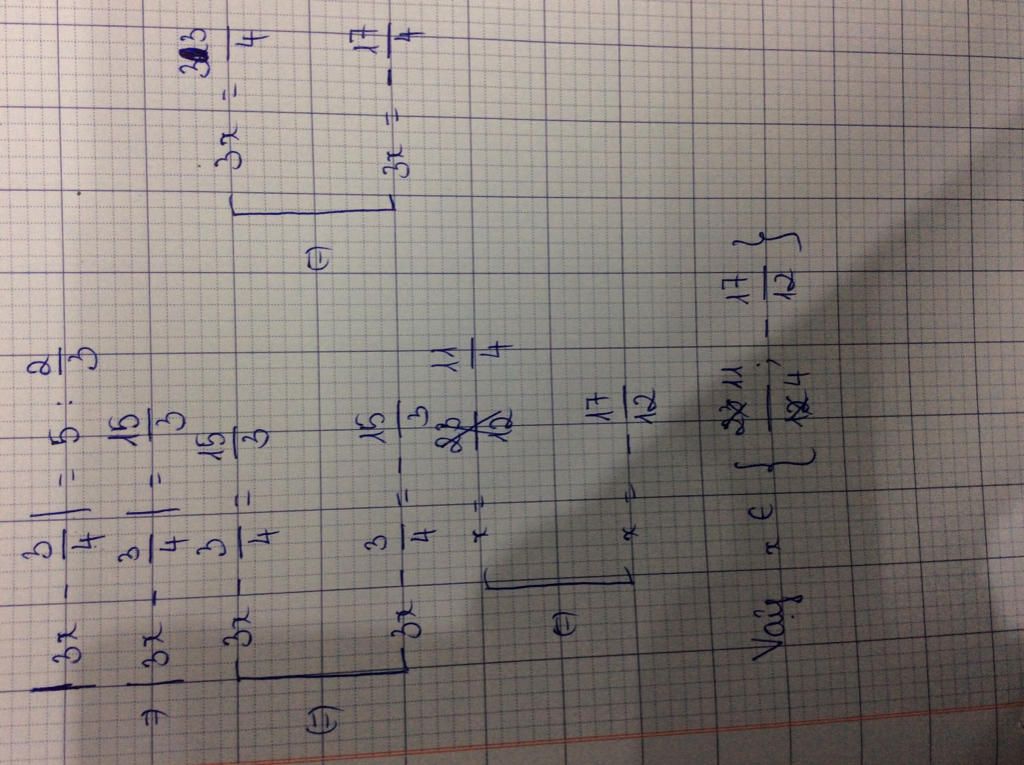 |3x - 3/4| = 5 : 2/3
=> |3x - 3/4| = 15/3
(=) [ 3x - 3/4 = 15/3 (=) [ 3x = 33/4
3x - 3/4 = - 15/3 3x = - 17/4
(=) [ x = 11/4
x = - 17/12
Vậy x ∈ { 11/4 ; - 17/12 }